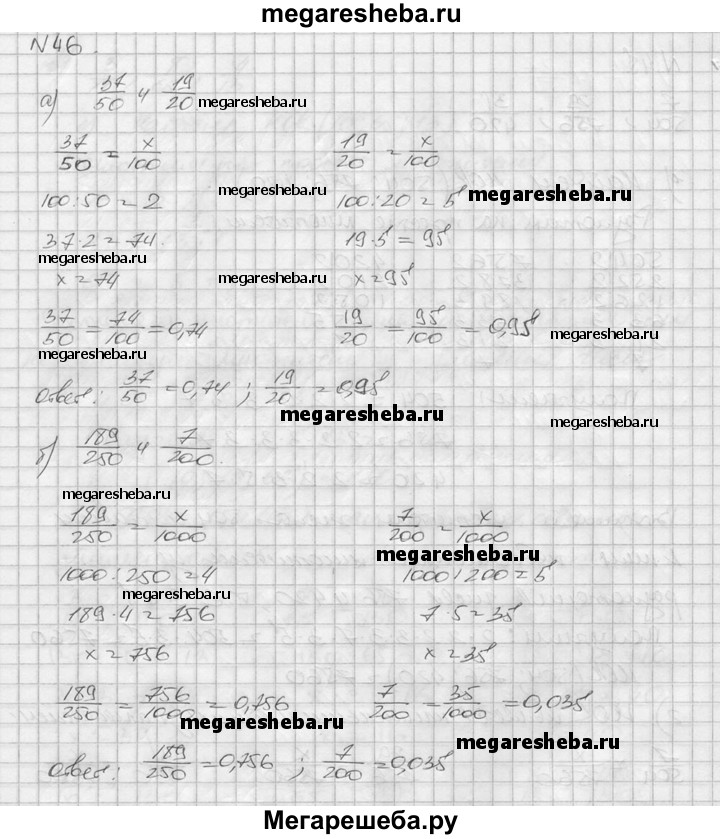 megaresheba.ru
N46.
а) 37/50 и 19/20 megaresheba.ru
37/50 = x/100 19/20 = x/100
megaresheba.ru megaresheba.ru
100:50=2 100:20=5
37·2=74. 19·5=95
megaresheba.ru megaresheba.ru
x=74 x=95
37/50 = 74/100 = 0,74 19/20 = 95/100 = 0,95
megaresheba.ru megaresheba.ru
ответ: 37/50 = 0,74; 19/20 = 0,95
megaresheba.ru megaresheba.ru
б) 189/250 и 7/200.
megaresheba.ru
189/250 = x/1000 7/200 = x/1000
megaresheba.ru
1000:250=4 1000:200=5
megaresheba.ru
189·4=756 7·5=35
x=756 x=35
189/250 = 756/1000 = 0,756 7/200 = 35/1000 = 0,035
megaresheba.ru megaresheba.ru
ответ: 189/250 = 0,756; 7/200 = 0,035
Мегарешеба.ру